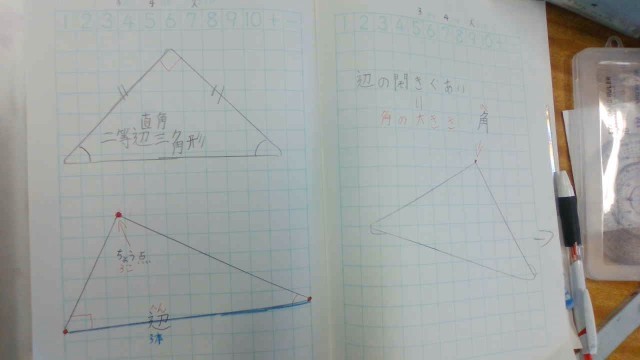 1 2 3 4 5 6 7 8 9 10
直角
二等辺三角形
ちょう点
辺
3本
1 2 3 4 5 6 7 8 9 10
辺の開きぐあい
角の大きさ
角